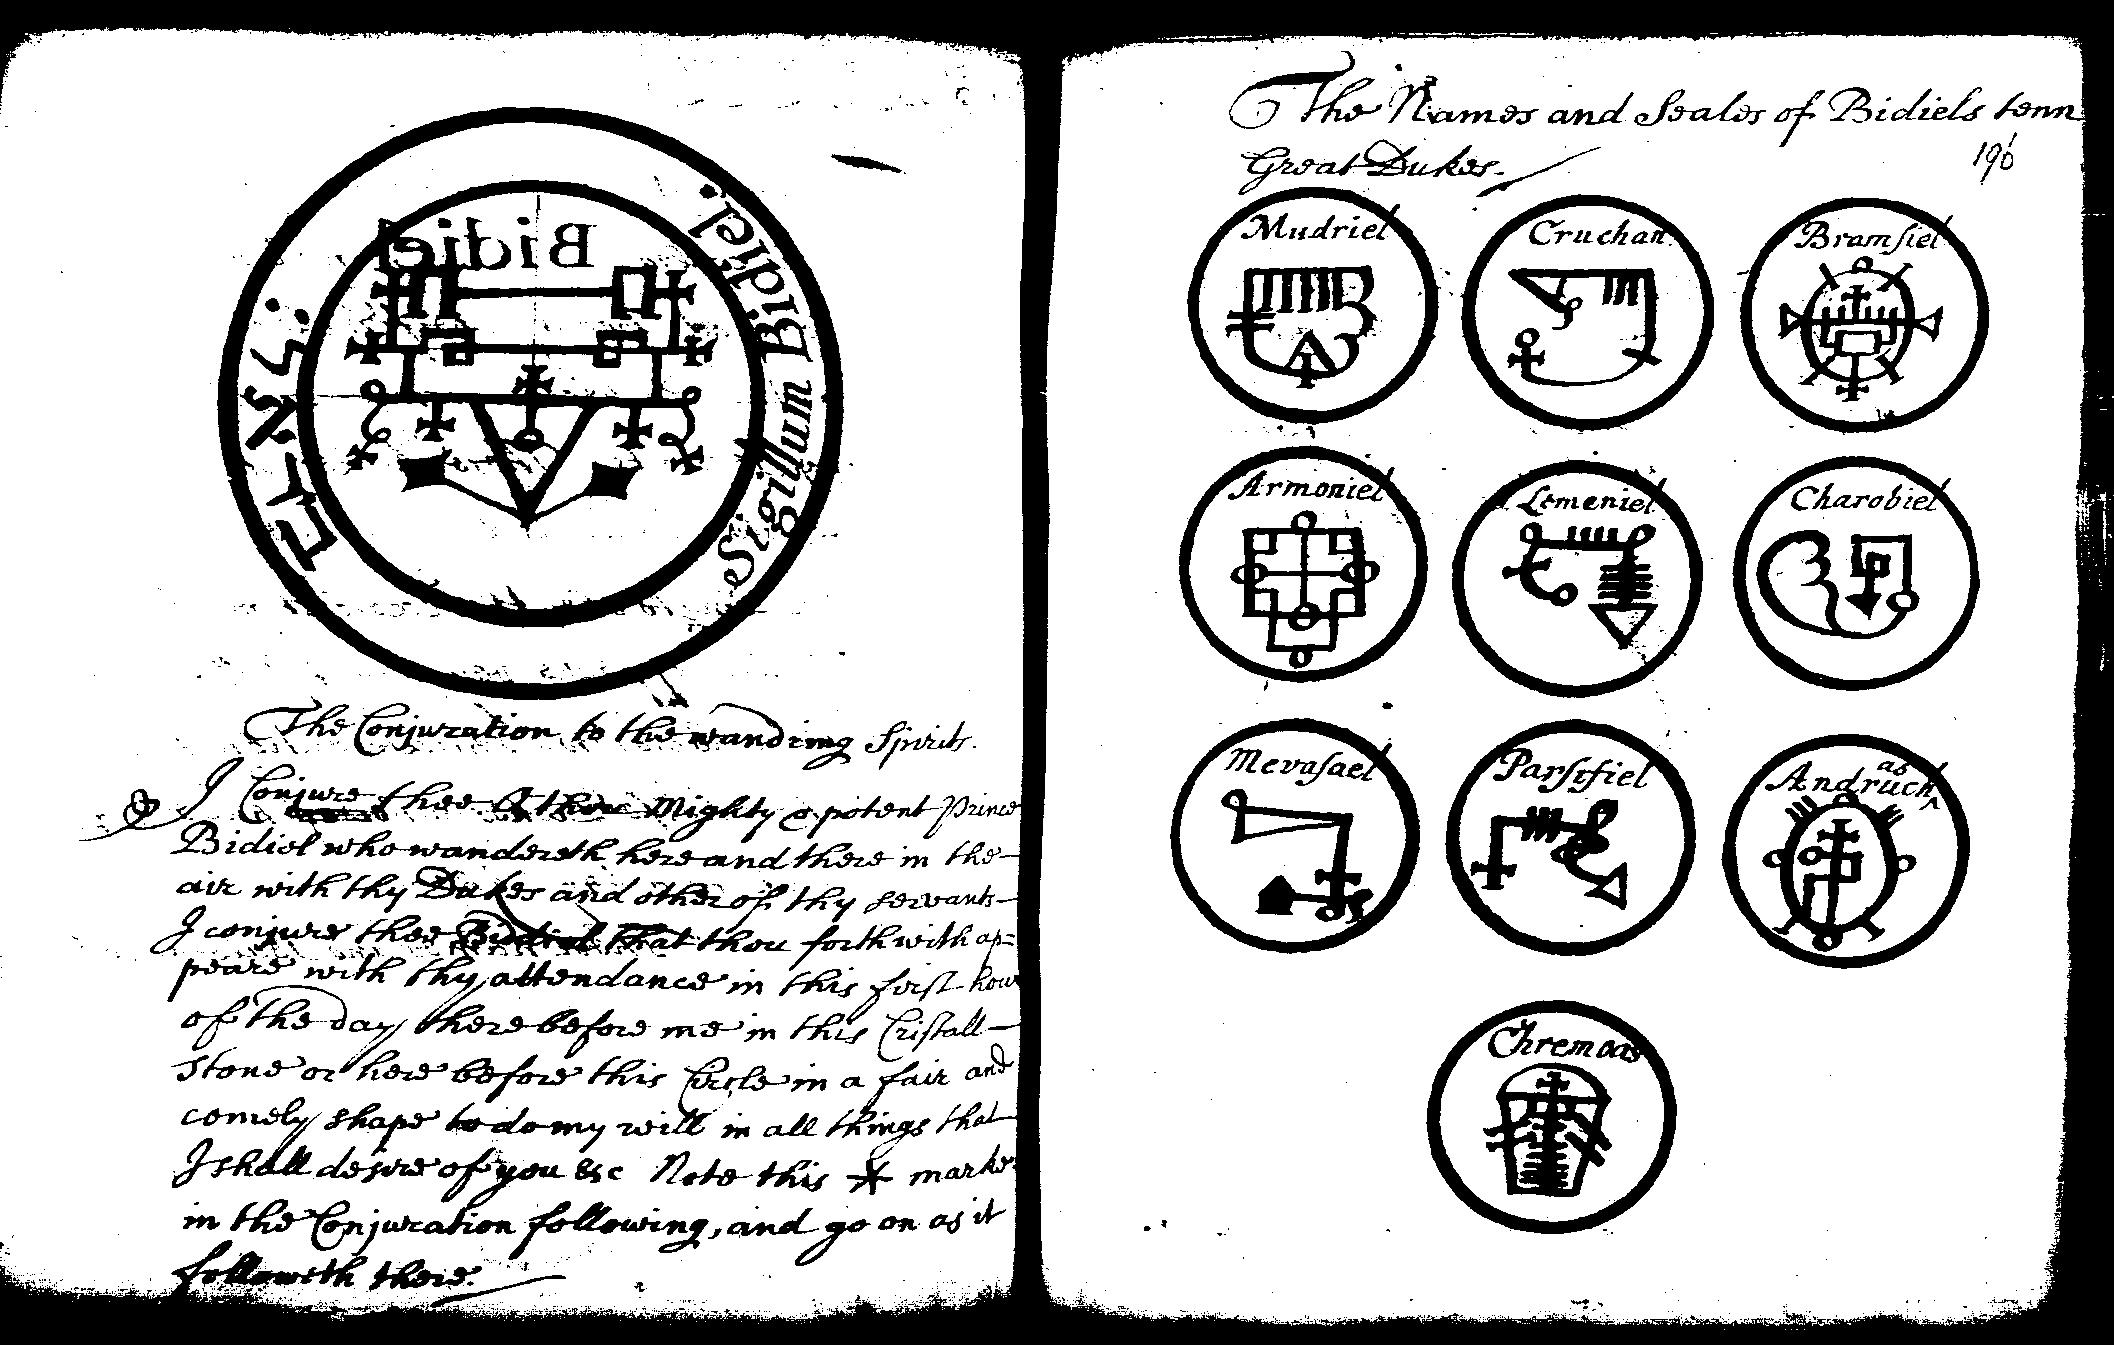 Bidiel
Sigillum Bidiel.
The Conjuration to the wandring Spirits.
I Conjure thee O thou Mighty & potent Prince
Bidiel who wandereth here and there in the
air with thy Dukes and other of thy servants
I conjure thee Bidiel that thou forthwith ap=
peare with thy attendance in this first hour
of the day there before me in this Cristall
stone or here before this Circle in a fair and
comely shape to do my will in all things that
I shall desire of you &c Note this * marke
in the Conjuration following, and go on as it
followeth there.
The Names and Seales of Bidiels tenn
Great Dukes.
196
Mudriel
Cruchan
Bramſiel
Armoniel
Lemeniel
Charobiel
Mevaſael
Parſifiel
as
Andruch
Chremoas